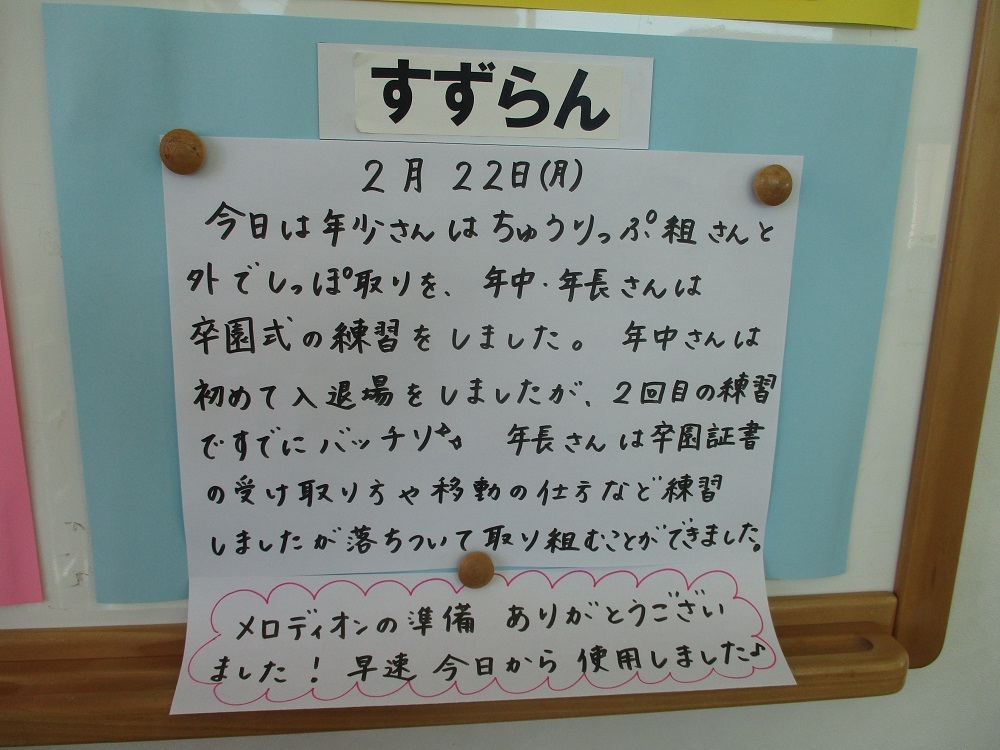 すずらん
2月 22日(月)
今日は年少さんはちゅうりっぷ組さんと
外でしっぽ取りを、年中・年長さんは
卒園式の練習をしました。 年中さんは
初めて入退場をしましたが、2回目の練習
ですでにバッチリ 年長さんは卒園証書
の受け取り方や移動の仕方など練習
しましたが落ちついて取り組むことができました。
メロディオンの準備 ありがとうござい
ました! 早速 今日から 使用しました♪